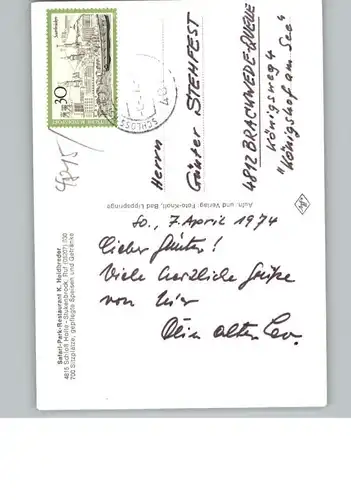 So., 7. April 1974
Lieber Günter!
Viele herzliche Grüße
von hier
Dein alter Leo.
Herrn
Günter STEHFEST
4812 BRACKWEDE-QUELLE
Königsweg 4
"Königshof am See"
30
DEUTSCHE BUNDESPOST
SCHLOSS
4815
Safari-Park-Restaurant K. Heidbreder
4815 Schloß Holte-Stukenbrock, Ruf (05207)
700 Sitzplätze, gepflegte Speisen und Getränke
Aufn. und Verlag: Foto-Knoll, Bad Lippspringe
Agfa